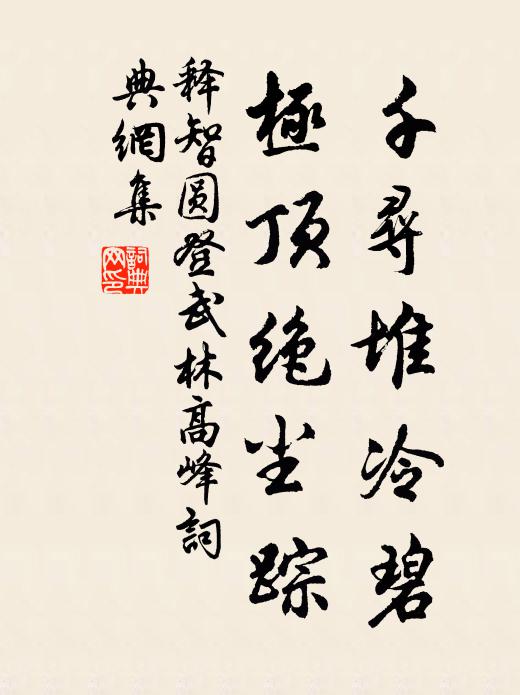 千尋堆冷碧
極顶绝尘踪
释智圆登武林高峰詞
典網集
詞典网印